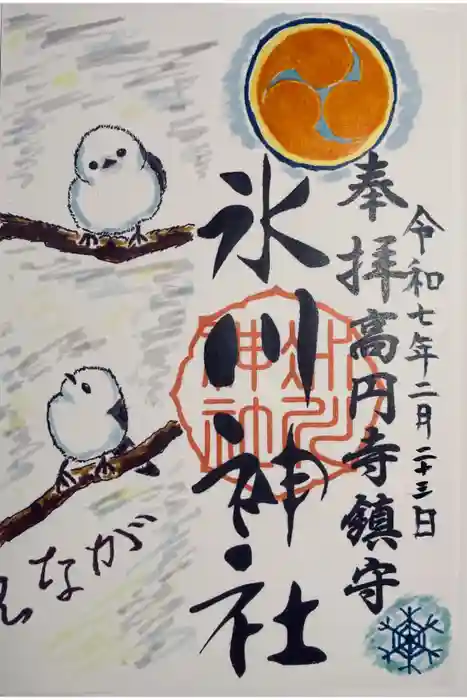 令和七年二月二十三日
奉拝高円寺鎮守
氷川神社
氷川神社
がながえ